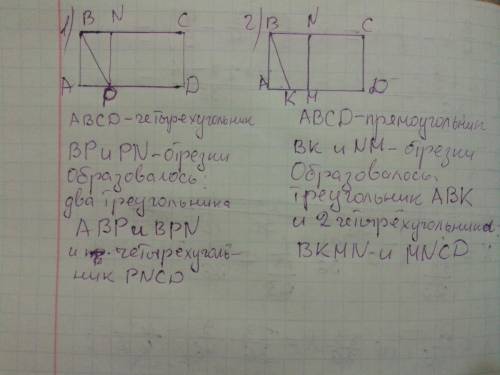 1) B N C
A P D
ABCD-четырёхугольник
BP и PN-отрезки
Образовалось:
два треугольника
ABP и BPN
и четырёхуголь-
ник PNCD
2) B N C
A K M D
ABCD-прямоугольник
BK и NM- отрезки
Образовалось:
треугольник ABK
и 2 четырёхугольника
BKMN-и MNCD